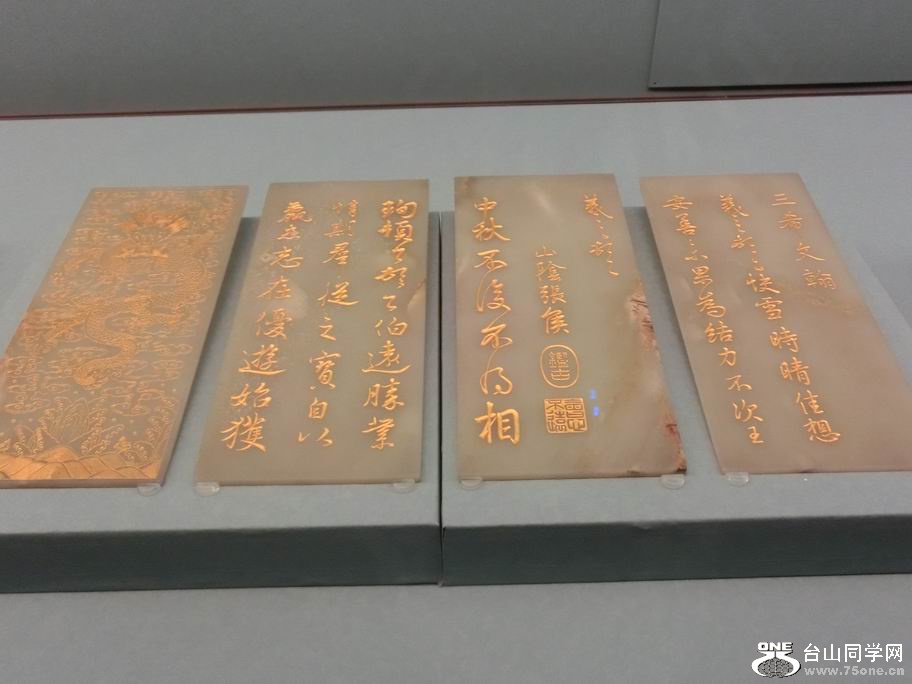 三希文翰
羲之頓首快雪時晴佳想
安善未果為結力不次王
羲之頓首
山陰張侯
中秋不復不得相
珣頓首頓首伯遠勝業
情期群從之寶自以
羸患志在優遊始獲
ONE
台山同学网
www.75one.cn